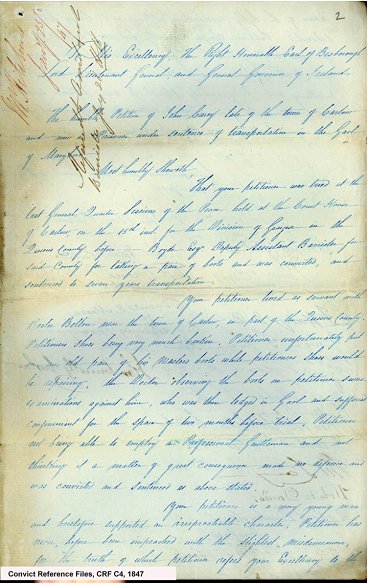 2
To His Excellency, The Right Honorable Earl of Besborough
Lord Lieutenant General and General Governor of Ireland.
The humble Petition of John Carey late of the town of Carlow
and now a Prisoner under sentence of transportation in the Gaol
of Mary
Most humbly Sheweth,
That your petitioner was tried at the
last General Quarter Sessions of the Peace held at the Court House
of Carlow on the 15th inst. for the Division of in the
Queens County, before Boyde Esqr. Deputy Assistant Barrister for
said County for taking a pair of boots and was convicted, and
sentenced to seven years transportation.
Your petitioner lived as servant with
Doctor Bolton near the town of Carlow, in part of the Queens County,
Petitioners shoes being very much broken, Petitioner unfortunately put
on a pair of his masters boots while petitioners shoes would
be repairing, the Doctor observing the boots on petitioner swore
examinations against him, who was then lodged in Gaol and suffered
confinement for the space of two months before trial, Petitioner
not being able to employ a Professional Gentleman and not
thinking it a matter of great consequence made no defence and
was convicted and sentenced as above stated.
Your petitioner is a very young man
and heretofore supported an irreproachable character, Petitioner has
never before been impeached with the slightest misdemeanour,
for the truth of which petitioner refers your Excellency to the
Convict Reference Files, CRF C4, 1847